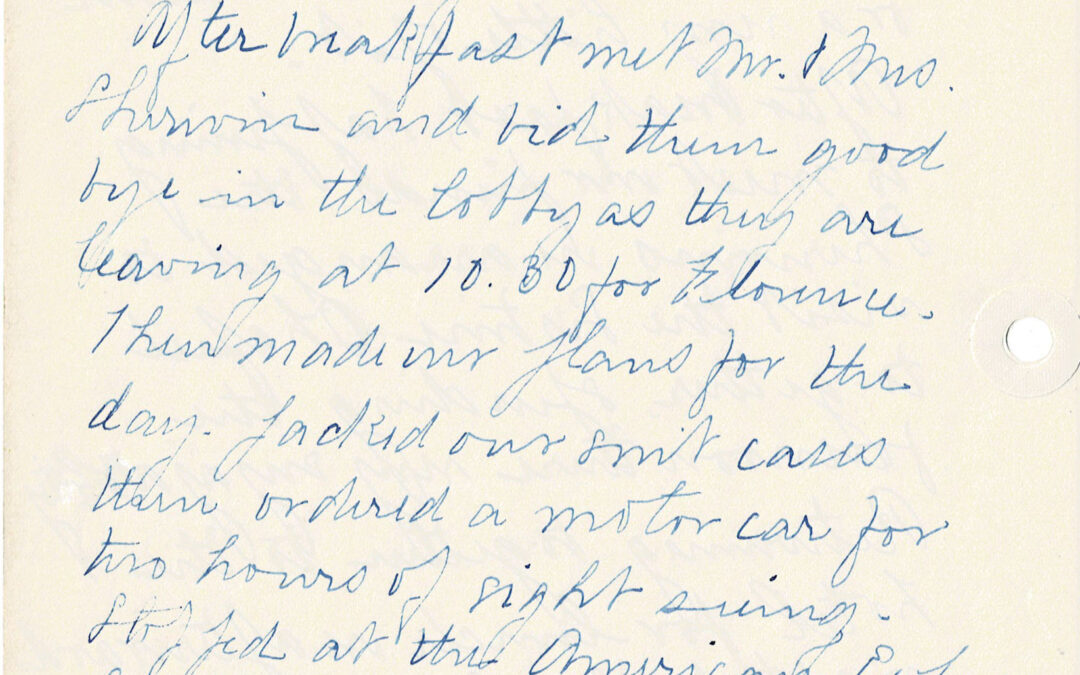 After breakfast met Mr. & Mrs.
Sherwin and bid them good
bye in the lobby as they are
leaving at 10.30 for Florence.
Then made our plans for the
day. Packed our suit cases
then ordered a motor car for
two hours of sight seeing.
Stopped at the American